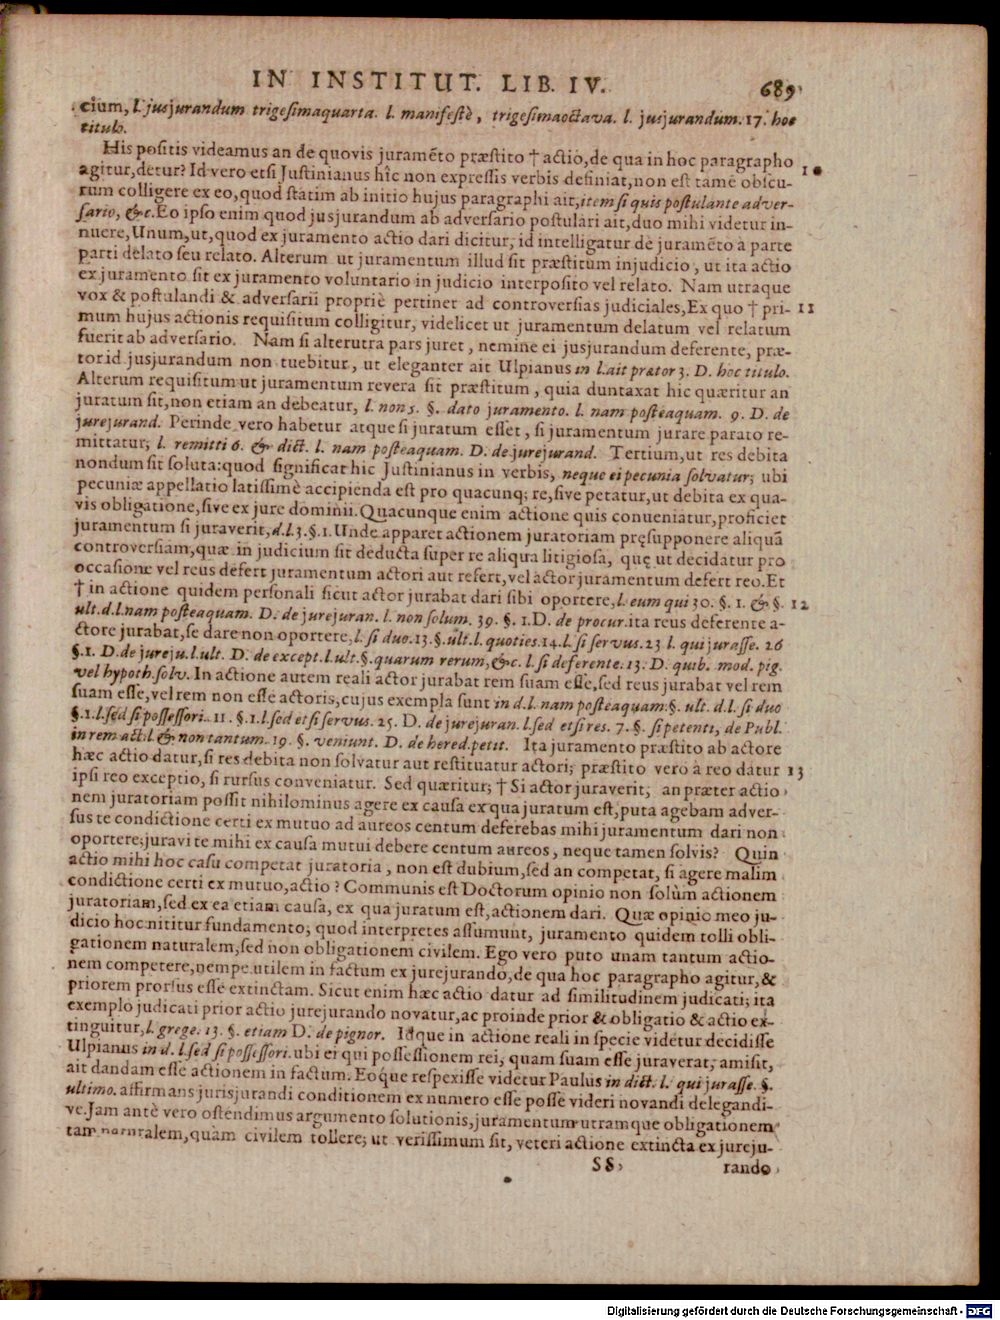 IN INSTITUT. LIB. IV. 689
cium, l. jusjurandum trigesimaquarta. l. manifestè, trigesimaoctava. l. jusjurandum. 17. hoc
titulo.
His positis videamus an de quovis juramẽto præstito † actio, de qua in hoc paragrapho 10
agitur, detur? Id vero etsi Justinianus hîc non expressis verbis definiat, non est tamẽ obscu-
rum colligere ex eo, quod statim ab initio hujus paragraphi ait, item si quis postulante adver-
sario, &c. Eo ipso enim quod jusjurandum ab adversario postulari ait, duo mihi videtur in-
nuere, Unum, ut, quod ex juramento actio dari dicitur, id intelligatur de juramẽto à parte
parti delato seu relato. Alterum ut juramentum illud sit præstitum in judicio, ut ita actio
ex juramento sit ex juramento voluntario in judicio interposito vel relato. Nam utraque
vox & postulandi & adversarii propriè pertinet ad controversias judiciales, Ex quo † pri- 11
mum hujus actionis requisitum colligitur, videlicet ut juramentum delatum vel relatum
fuerit ab adversario. Nam si alterutra pars juret, nemine ei jusjurandum deferente, præ-
tor id jusjurandum non tuebitur, ut eleganter ait Ulpianus in l. ait prator 3. D. hoc titulo.
Alterum requisitum ut juramentum revera sit præstitum, quia duntaxat hic quæritur an
juratum sit, non etiam an debeatur, l. non 5. §. dato juramento. l. nam posteaquam. 9. D. de
jurejurand. Perinde vero habetur atque si juratum esset, si juramentum jurare parato re-
mittatur, l. remitti 6. & dict. l. nam posteaquam. D. de jurejurand. Tertium, ut res debita
nondum sit soluta: quod significat hic Justinianus in verbis, neque ei pecunia solvatur; ubi
pecuniæ appellatio latissimè accipienda est pro quacunq; re, sive petatur, ut debita ex qua-
vis obligatione, sive ex jure dominii. Quacunque enim actione quis conueniatur, proficiet
juramentum si juraverit, d. l. 3. §. 1. Unde apparet actionem juratoriam pręsupponere aliquã
controversiam, quæ in judicium sit deducta super re aliqua litigiosa, quę ut decidatur pro
occasione vel reus defert juramentum actori aut refert, vel actor juramentum defert reo. Et
† in actione quidem personali sicut actor jurabat dari sibi oportere, l. eum qui 30. §. 1. & §. 12
ult. d. l. nam posteaquam. D. de jurejuran. l. non solum. 39. §. 1. D. de procur. ita reus deferente a-
ctore jurabat, se dare non oportere, l. si duo. 13. §. ult. l. quoties. 14. l. si servus. 23 l. qui jurasse. 26
§. 1. D. de jureju. l. ult. D. de except. l. ult. §. quarum rerum, &c. l. si deferente. 13. D. quib. mod. pig.
vel hypoth. solv. In actione autem reali actor jurabat rem suam esse, sed reus jurabat vel rem
suam esse, vel rem non esse actoris, cujus exempla sunt in d. l. nam posteaquam. §. ult. d. l. si duo
§. 1. l. sed si possessori.. 11. §. 1. l. sed et si servus. 25. D. de jurejuran. l. sed et si res. 7. §. si petenti, de Publ.
in rem act. l. & non tantum. 19. §. veniunt. D. de hered. petit. Ita juramento præstito ab actore
hæc actio datur, si res debita non solvatur aut restituatur actori; præstito vero à reo datur 13
ipsi reo exceptio, si rursus conveniatur. Sed quæritur; † Si actor juraverit; an præter actio
nem juratoriam possit nihilominus agere ex causa ex qua juratum est, puta agebam adver-
sus te condictione certi ex mutuo ad aureos centum deferebas mihi juramentum dari non
oportere; juravi te mihi ex causa mutui debere centum aureos, neque tamen solvis? Quin
actio mihi hoc casu competat juratoria, non est dubium, sed an competat, si agere malim
condictione certi ex mutuo, actio? Communis est Doctorum opinio non solùm actionem
juratoriam, sed ex ea etiam causa, ex qua juratum est, actionem dari. Quæ opinio meo ju-
dicio hoc nititur fundamento; quod interpretes assumunt, juramento quidem tolli obli-
gationem naturalem, sed non obligationem civilem. Ego vero puto unam tantum actio-
nem competere, nempe utilem in factum ex jurejurando, de qua hoc paragrapho agitur, &
priorem prorsus esse extinctam. Sicut enim hæc actio datur ad similitudinem judicati; ita
exemplo judicati prior actio jurejurando novatur, ac proinde prior & obligatio & actio ex-
tinguitur, l. grege. 13. §. etiam D. de pignor. Idque in actione reali in specie videtur decidisse
Ulpianus in d. l. sed si possessori. ubi ei qui possessionem rei, quam suam esse juraverat, amisit,
ait dandam esse actionem in factum. Eoque respexisse videtur Paulus in dict. l. qui jurasse. §.
ultimo. affirmans jurisjurandi conditionem ex numero esse posse videri novandi delegandi-
ve. Jam antè vero ostendimus argumento solutionis, juramentum utramque obligationem
tam naturalem, quàm civilem tollere; ut verissimum sit, veteri actione extincta ex jureju-
SS rando
Digitalisierung gefördert durch die Deutsche Forschungsgemeinschaft - DFG